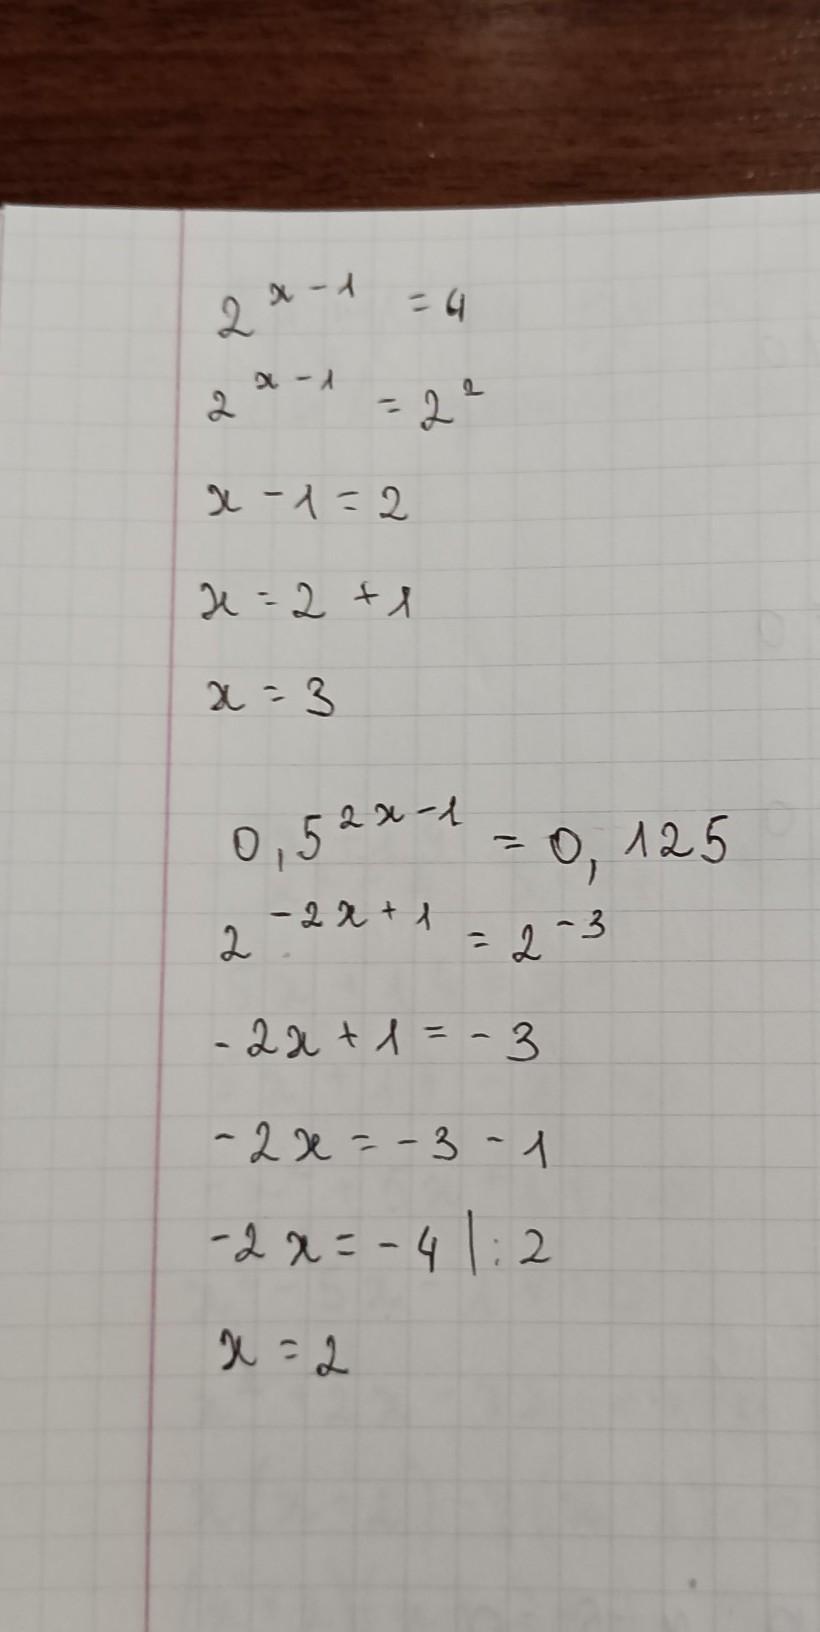 2^{x-1} = 4
2^{x-1} = 2^2
x - 1 = 2
x = 2 + 1
x = 3
0,5^{2x-1} = 0,125
2^{-2x+1} = 2^{-3}
-2x + 1 = -3
-2x = -3 - 1
-2x = -4 |: 2
x = 2